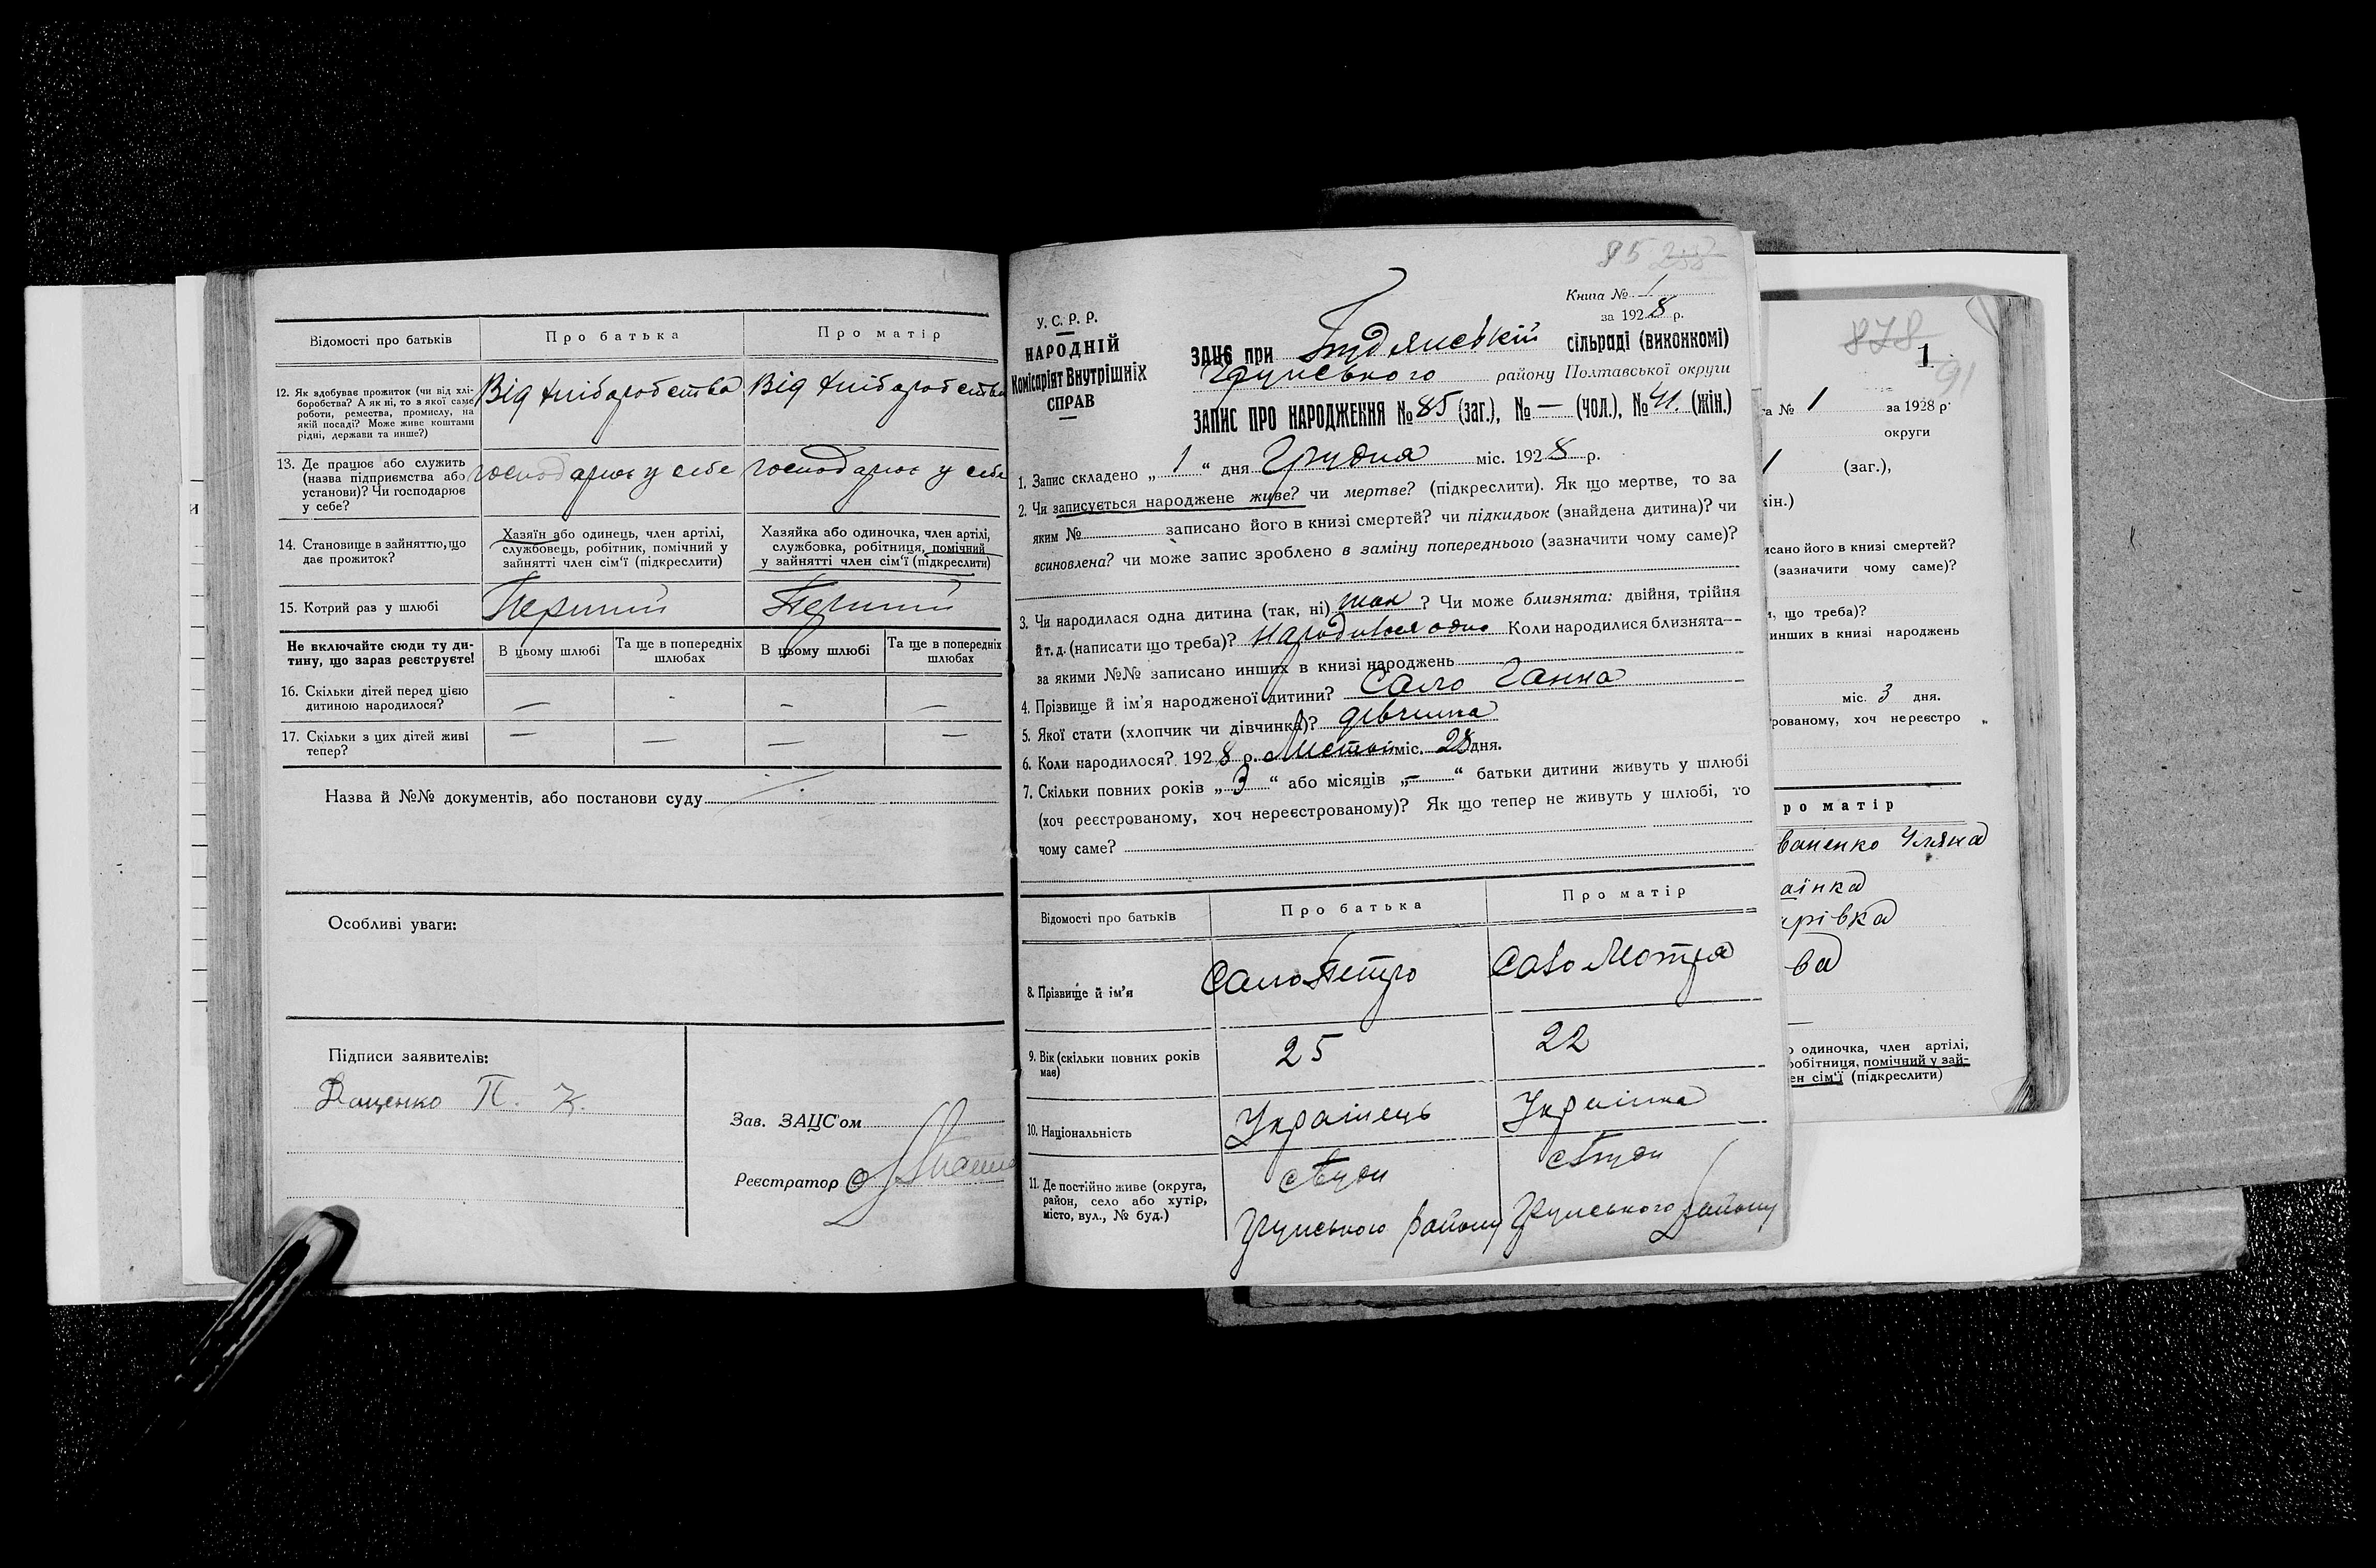 Відомості про батьків
Про батька
Про матір
12. Як здобуває прожиток (чи від хлі-
боробства? А як ні, то з якої саме
роботи, ремества, промислу, на
якій посаді? Може живе коштами
рідні, держави та инше?)
Від хліборобства
Від хліборобства
13. Де працює або служить
(назва підприємства або
установи)? Чи господарює
у себе?
господарює у себе
господарює у себе
14. Становище в зайняттю, що
дає прожиток?
Хазяїн або одинець, член артілі,
службовець, робітник, помічний у
зайнятті член сім'ї (підкреслити)
Хазяйка або одиночка, член артілі,
службовка, робітниця, помічний
у зайнятті член сім'ї (підкреслити)
15. Котрий раз у шлюбі
Перший
Перший
Не включайте сюди ту ди-
тину, що зараз реєструєте!
В цьому шлюбі
Та ще в попередніх
шлюбах
В цьому шлюбі
Та ще в попередніх
шлюбах
16. Скільки дітей перед цією
дитиною народилося?
— - — —
17. Скільки з цих дітей живі
тепер?
— — — —
Назва й №№ документів, або постанови суду
Особливі уваги:
Підписи заявителів:
Даценко П. К.
Зав. ЗАЦС'ом
Реєстратор
85 238
Книга № 1
за 1928 р.
У. С. Р. Р.
НАРОДНІЙ
Комісаріят Внутрішніх
СПРАВ
ЗАЦС при сільраді (виконкомі)
Грунського району Полтавської округи
ЗАПИС ПРО НАРОДЖЕННЯ № 85 (заг.), № — (чол.), № 41. (жін.)
1. Запис складено „ 1 “ дня Грудня міс. 1928 р.
2. Чи записується народжене живе? чи мертве? (підкреслити). Як що мертве, то за
яким № записано його в книзі смертей? чи підкидьок (знайдена дитина)? чи
всиновлена? чи може запис зроблено в заміну попереднього (зазначити чому саме)?
3. Чи народилася одна дитина (так, ні) так ? Чи може близнята: двійня, трійня
й т. д. (написати що треба)? народилося одно Коли народилися близнята—
за якими №№ записано инших в книзі народжень
4. Прізвище й ім'я народженої дитини? Сало Ганна
5. Якої стати (хлопчик чи дівчинка)? дівчинка
6. Коли народилося? 1928 р. Листоп міс. 28 дня.
7. Скільки повних років „ 3 “ або місяців „ — “ батьки дитини живуть у шлюбі
(хоч реєстрованому, хоч нереєстрованому)? Як що тепер не живуть у шлюбі, то
чому саме?
Відомості про батьків
Про батька
Про матір
8. Прізвище й ім'я
Сало Петро
Сало Мотря
9. Вік (скільки повних років
має)
25
22
10. Національність
Українець
Українка
11. Де постійно живе (округа,
район, село або хутір,
місто, вул., № буд.)
Грунського району
Грунського району
878
1
91
га № 1 за 1928 р.
округи
1 (заг.),
жін.)
исано його в книзі смертей?
(зазначити чому саме)?
и, що треба)?
инших в книзі народжень
міс. 3 дня.
рованому, хоч нереєстро
ро матір
ваненко Уляна
аїнка
арівка
ва
о одиночка, член артілі,
робітниця, помічний у зай-
ен сім'ї (підкреслити)